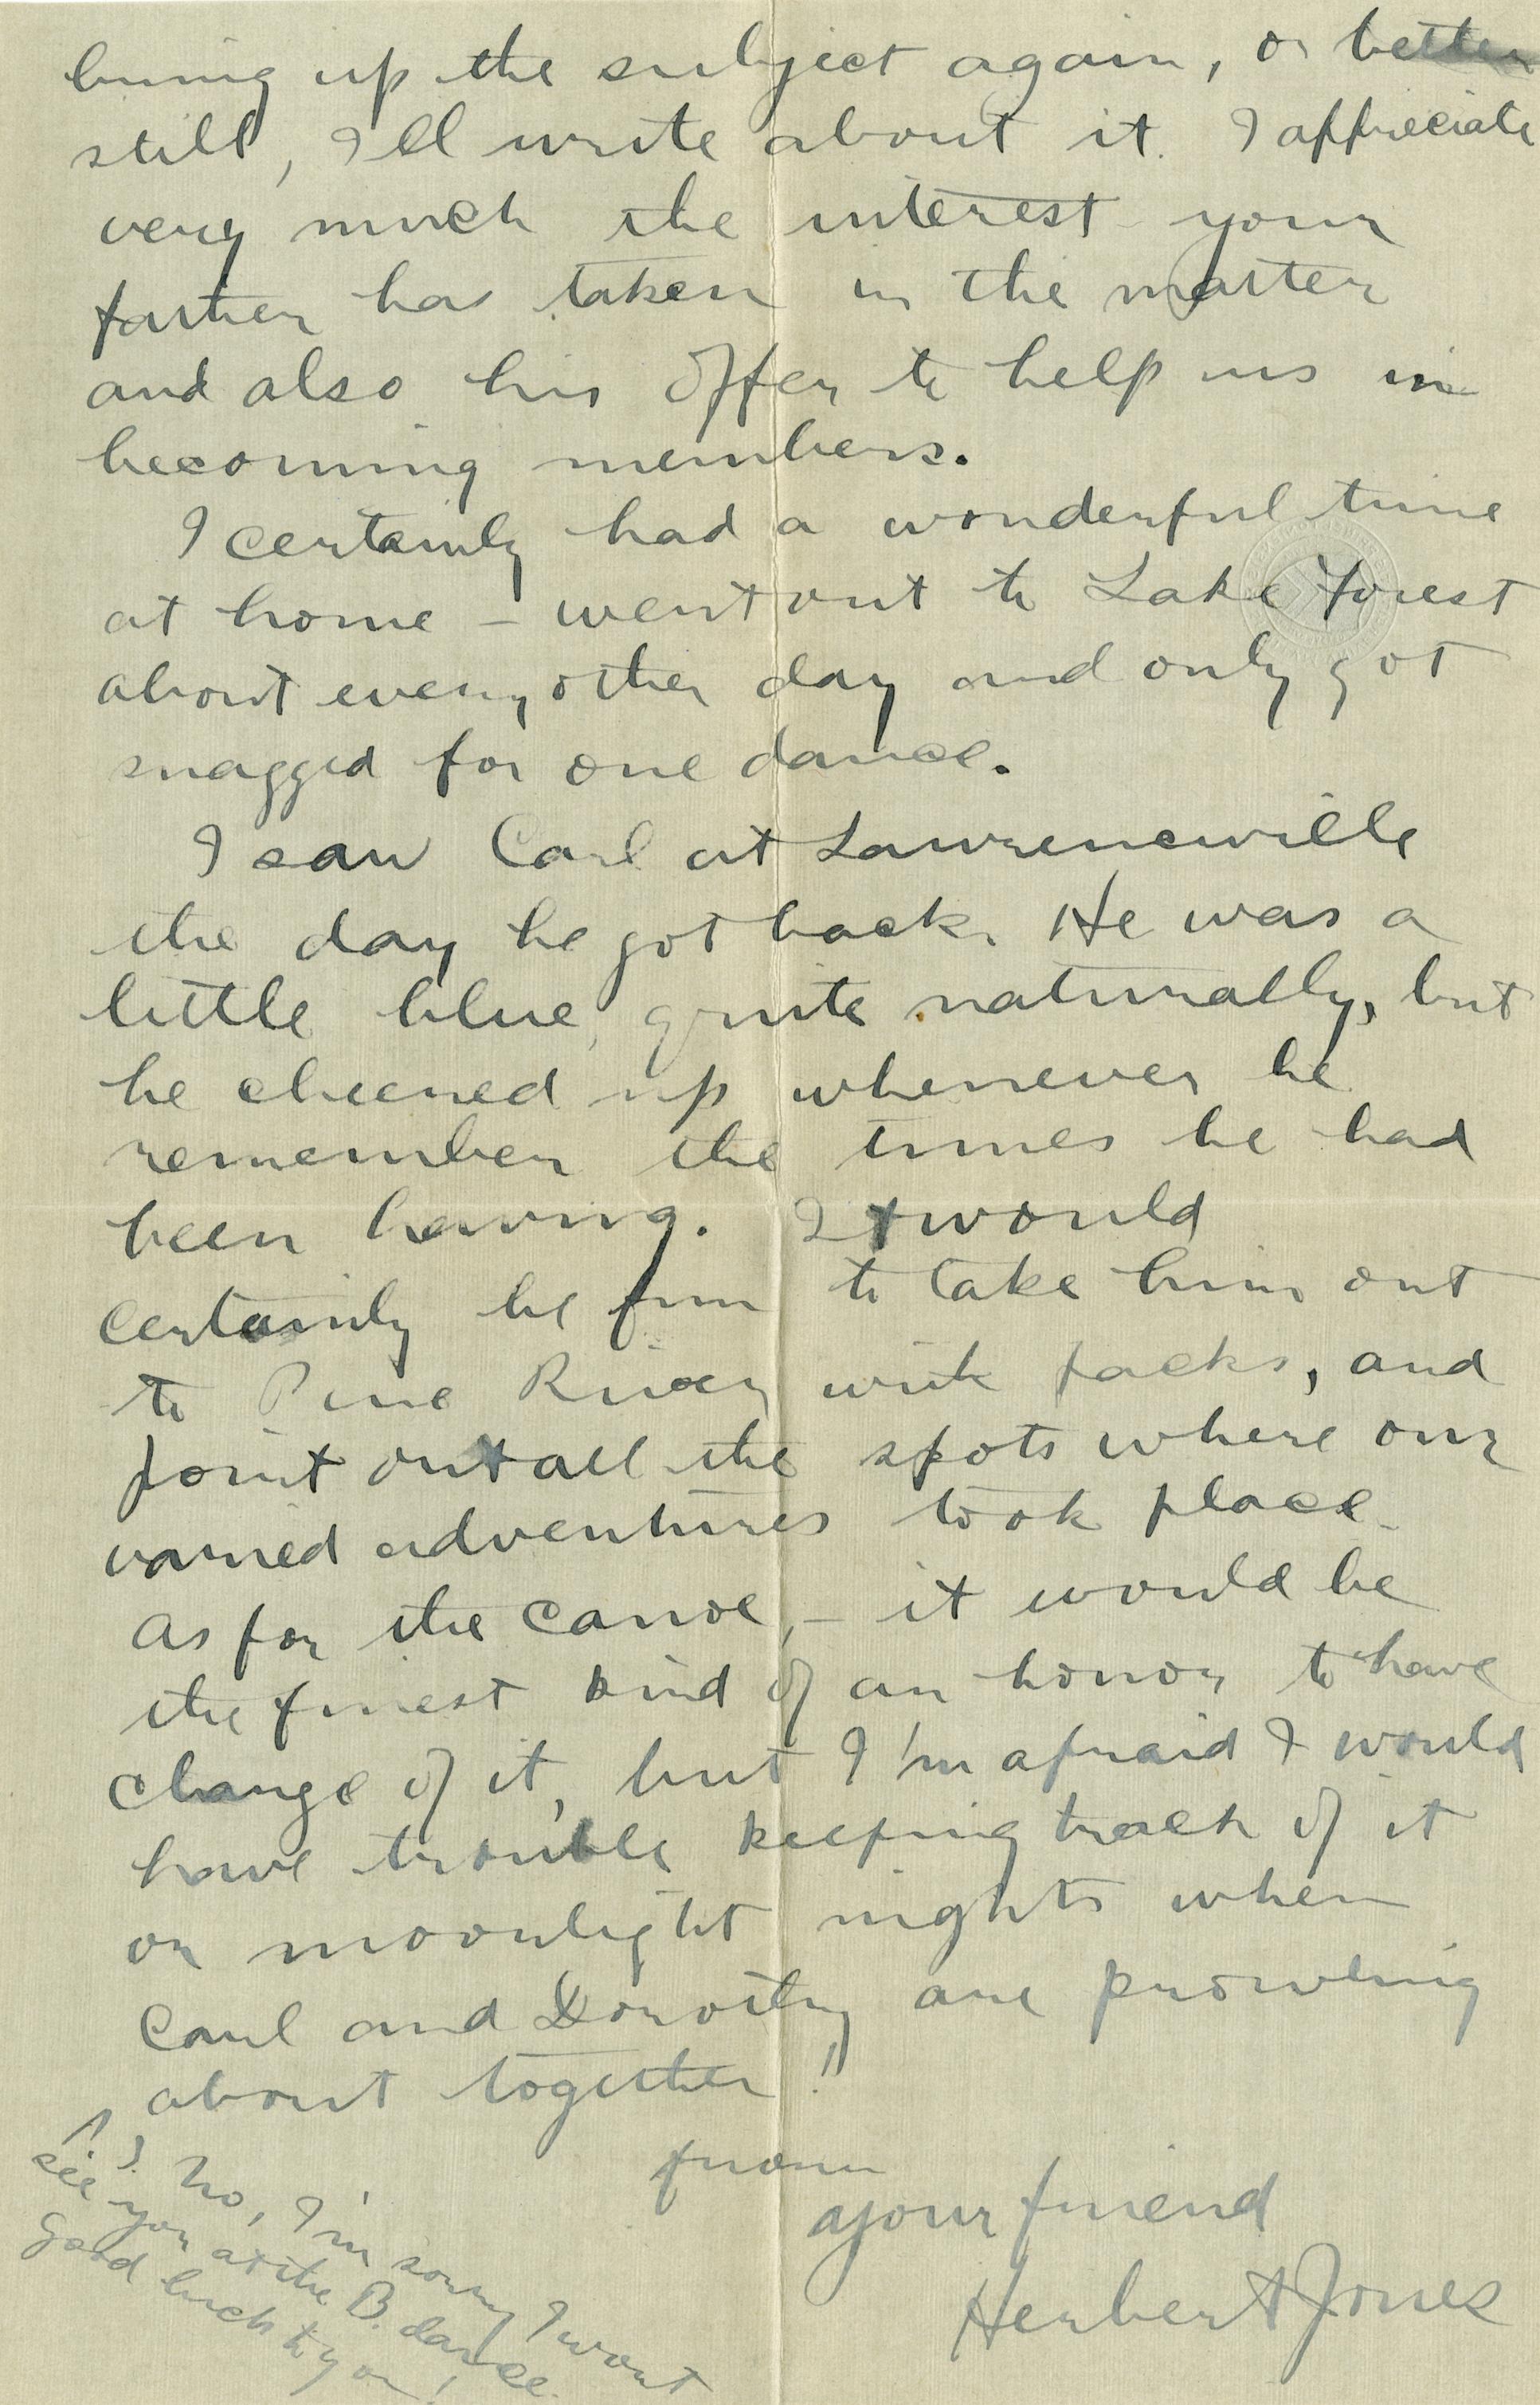 bring up the subject again, or better
still, I'll write about it. I appreciate
very much the interest your
father has taken in the matter
and also his offer to help us in
becoming members.
I certainly had a wonderful time
at home – went out to Lake Forest
about every other day and only got
snagged for one dance.
I saw Carl at Lawrenceville
the day he got back. He was a
little blue, quite naturally, but
he cheered up whenever he
remember the times he had
been having. It would
certainly be fun to take him out
to Pine River with packs, and
point out all the spots where our
varied adventures took place.
As for the canoe, – it would be
the finest kind of an honor to have
charge of it, but I'm afraid I would
have trouble keeping track of it
on moonlight nights when
Carl and Dorothy are prowling
about together!!
from
your friend
Herbert Jones
P.S. No, I'm sorry I won't
see you at the B. dance.
Good luck to you!